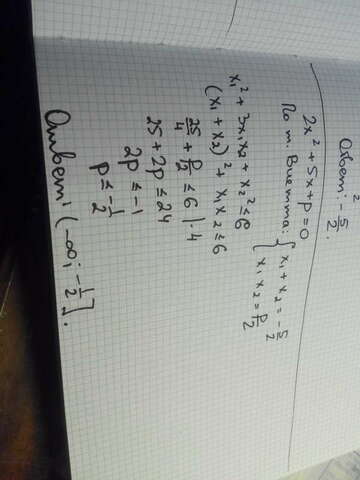 Ответ: -5/2.
2x² + 5x + p = 0
По т. Виетта: { x₁ + x₂ = -5/2
x₁x₂ = p/2
x₁² + 3x₁x₂ + x₂² ≤ 6
(x₁ + x₂)² + x₁x₂ ≤ 6
25/4 + p/2 ≤ 6 | · 4
25 + 2p ≤ 24
2p ≤ -1
p ≤ -1/2
Ответ: (-∞; -1/2].